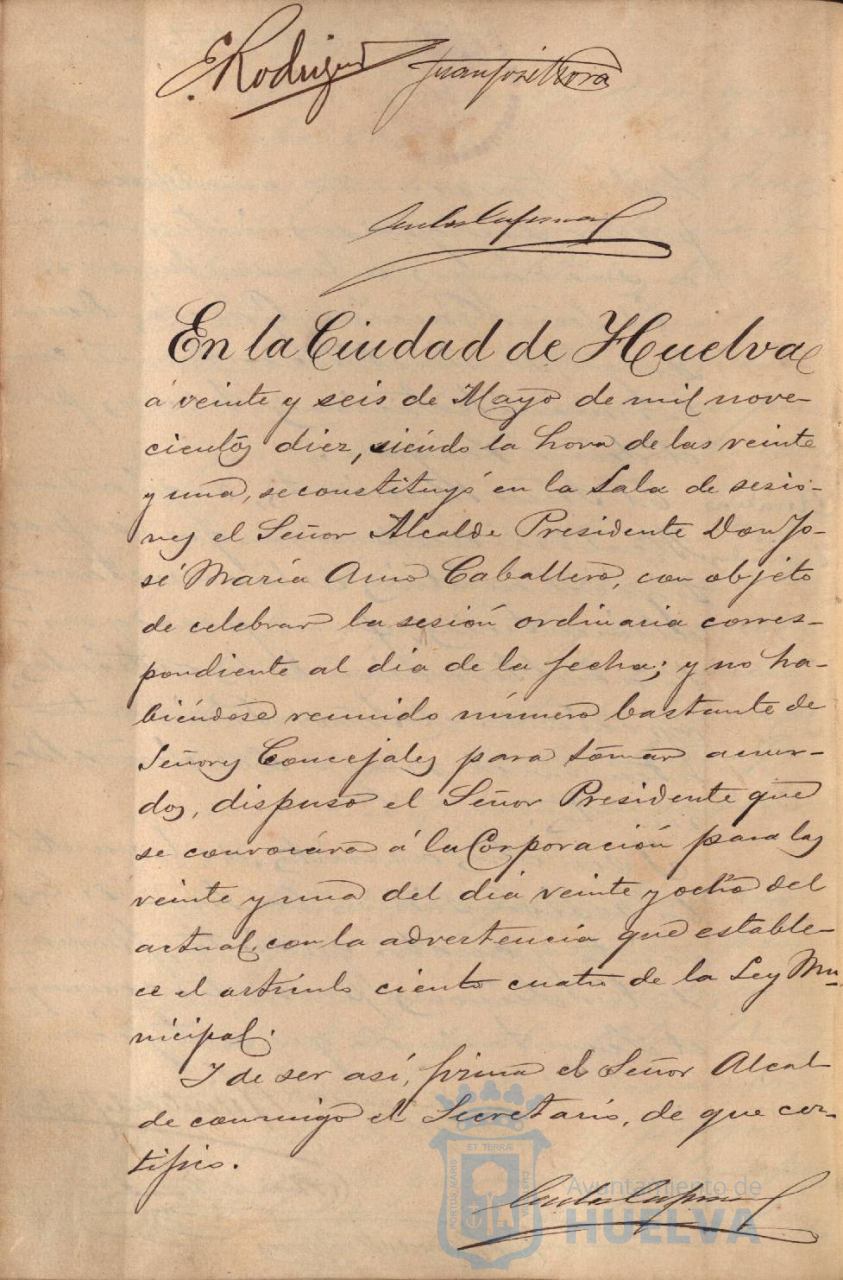 E. Rodriguez Juan José Mora
En la Ciudad de Huelva
á veinte y seis de Mayo de mil nove-
cientos diez, siendo la hora de las veinte
y una, se constituyó en la Sala de sesio-
nes el Señor Alcalde Presidente Don Jo-
sé María Amo Caballero, con objeto
de celebrar la sesión ordinaria corres-
pondiente al dia de la fecha; y no ha-
biéndose reunido número bastante de
Señores Concejales para tomar acuer-
dos, dispuso el Señor Presidente que
se convocára á la Corporación para las
veinte y una del dia veinte y ocho del
actual, con la advertencia que estable-
ce el artículo ciento cuatro de la Ley Mu-
nicipal.
Y de ser así, firma el Señor Alcal-
de conmigo el Secretario, de que cer-
tifico.
PORTUS MARIS ET TERRAE
Ayuntamiento de
HUELVA